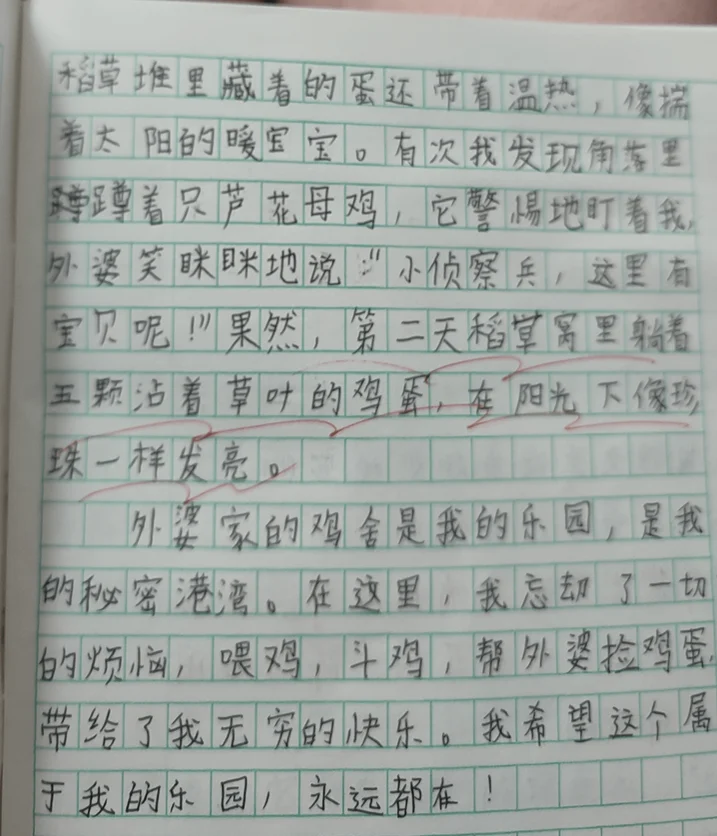 稻草堆里藏着的蛋还带着温热，像揣
着太阳的暖宝宝。有次我发现角落里
蹲蹲着只芦花母鸡，它警惕地盯着我，
外婆笑眯眯地说："小侦察兵，这里有
宝贝呢！"果然，第二天稻草窝里躺着
五颗沾着草叶的鸡蛋，在阳光下像珍
珠一样发亮。
外婆家的鸡舍是我的乐园，是我
的秘密港湾。在这里，我忘却了一切
的烦恼，喂鸡，斗鸡，帮外婆捡鸡蛋，
带给了我无穷的快乐。我希望这个属
于我的乐园，永远都在！